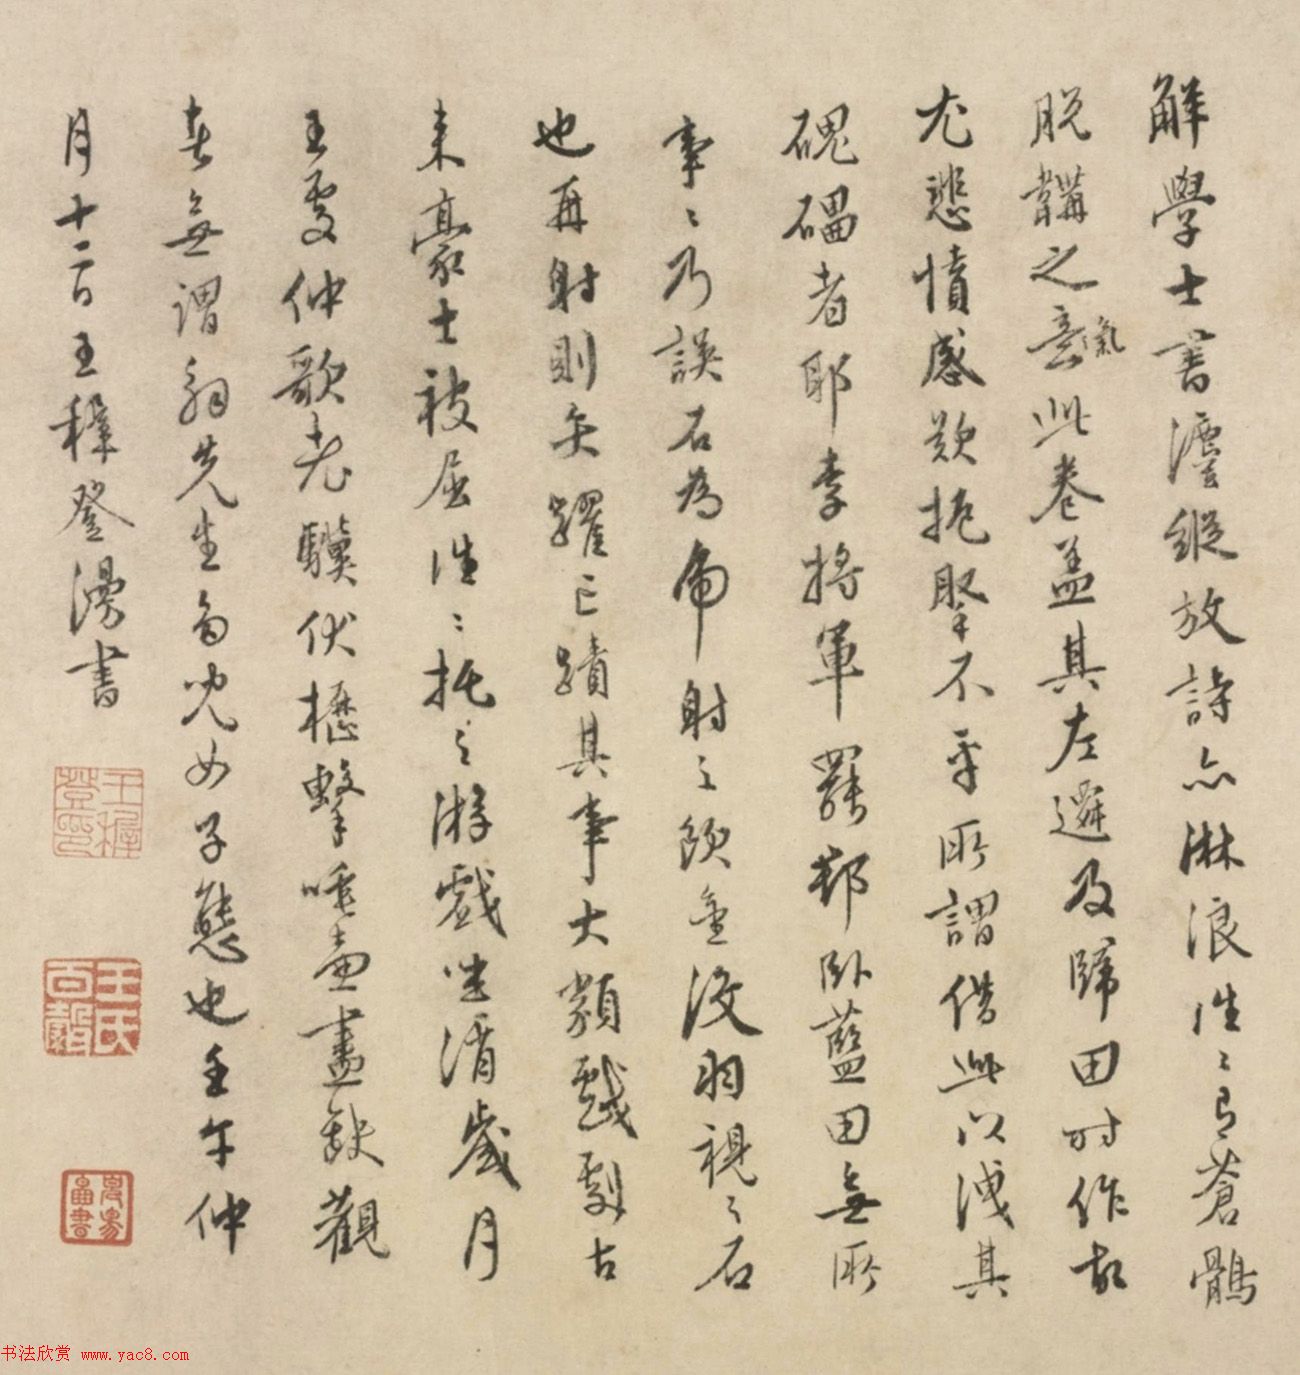 解學士書灋縱放詩亦淋浪往〻有蒼鶻
脫韝之意氣此卷盖其左遷及歸田時作故
尤悲憤感歎扼掔不平所謂借此以洩其
磈礧者耶李將軍罷郡卧藍田無所
事〻乃誤石為虎射之飲金没羽視之石
也再射則矢躍已蹟其事大類戲劇古
来豪士被屈往〻托之游戲坐消歲月
王處仲歌老驥伏櫪擊唾壺盡缺觀
者無謂先生為兒女子態也壬午仲
月十二日王穉登漫書
王穉登印
王氏百穀
书法欣赏 www.yac8.com